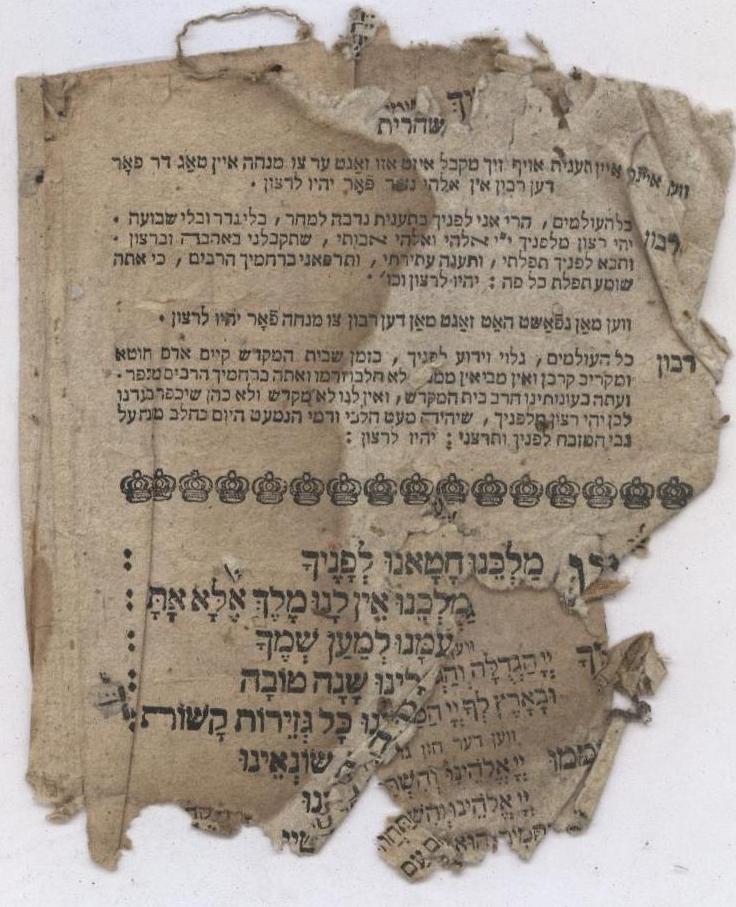 שחרית
ווען איינר איין תענית אויף זיך מקבל איזט אזו זאגט ער צו מנחה איין טאג דר פאר
דען רבון אין אלהי נצר פאר יהיו לרצון .
רבון כל העולמים , הרי אני לפניך בתענית נדבה למחר , בלי נדר ובלי שבועה .
יהי רצון מלפניך יי אלהי ואלהי אבותי , שתקבלני באהבה וברצון .
ותבא לפניך תפלתי , ותענה עתירתי , ותרפאני ברחמיך הרבים , כי אתה
שומע תפלת כל פה : יהיו לרצון וכו' .
ווען מאן געפאשט האט זאגט מאן דען רבון צו מנחה פאר יהיו לרצון .
רבון כל העולמים , גלוי וידוע לפניך , בזמן שבית המקדש קיים אדם חוטא
ומקריב קרבן ואין מביאין ממנו לא חלבו ודמו ואתה ברחמיך הרבים מכפר .
ועתה בעונותינו חרב בית המקדש , ואין לנו לא מקדש ולא כהן שיכפר בעדנו
לכן יהי רצון מלפניך , שיהיה מעט חלבי ודמי הנמעט היום כחלב מנח על
גבי המזבח לפניך ותרצני : יהיו לרצון :
מַלְכֵּנוּ חָטָאנוּ לְפָנֶיךָ :
מַלְכֵּנוּ אֵין לָנוּ מֶלֶךְ אֶלָּא אָתָּ :
עִמָּנוּ לְמַעַן שְׁמֶךָ :
שָׁנָה טוֹבָה :
כָּל גְּזֵירוֹת קָשׁוֹת :
שׂוֹנְאֵינוּ
יְיָ הַגְּדֻלָּה
וּבָאָרֶץ לְךָ יְיָ
ווען דער חזן
יְיָ אֱלֹהֵינוּ
יְיָ אֱלֹהֵינוּ